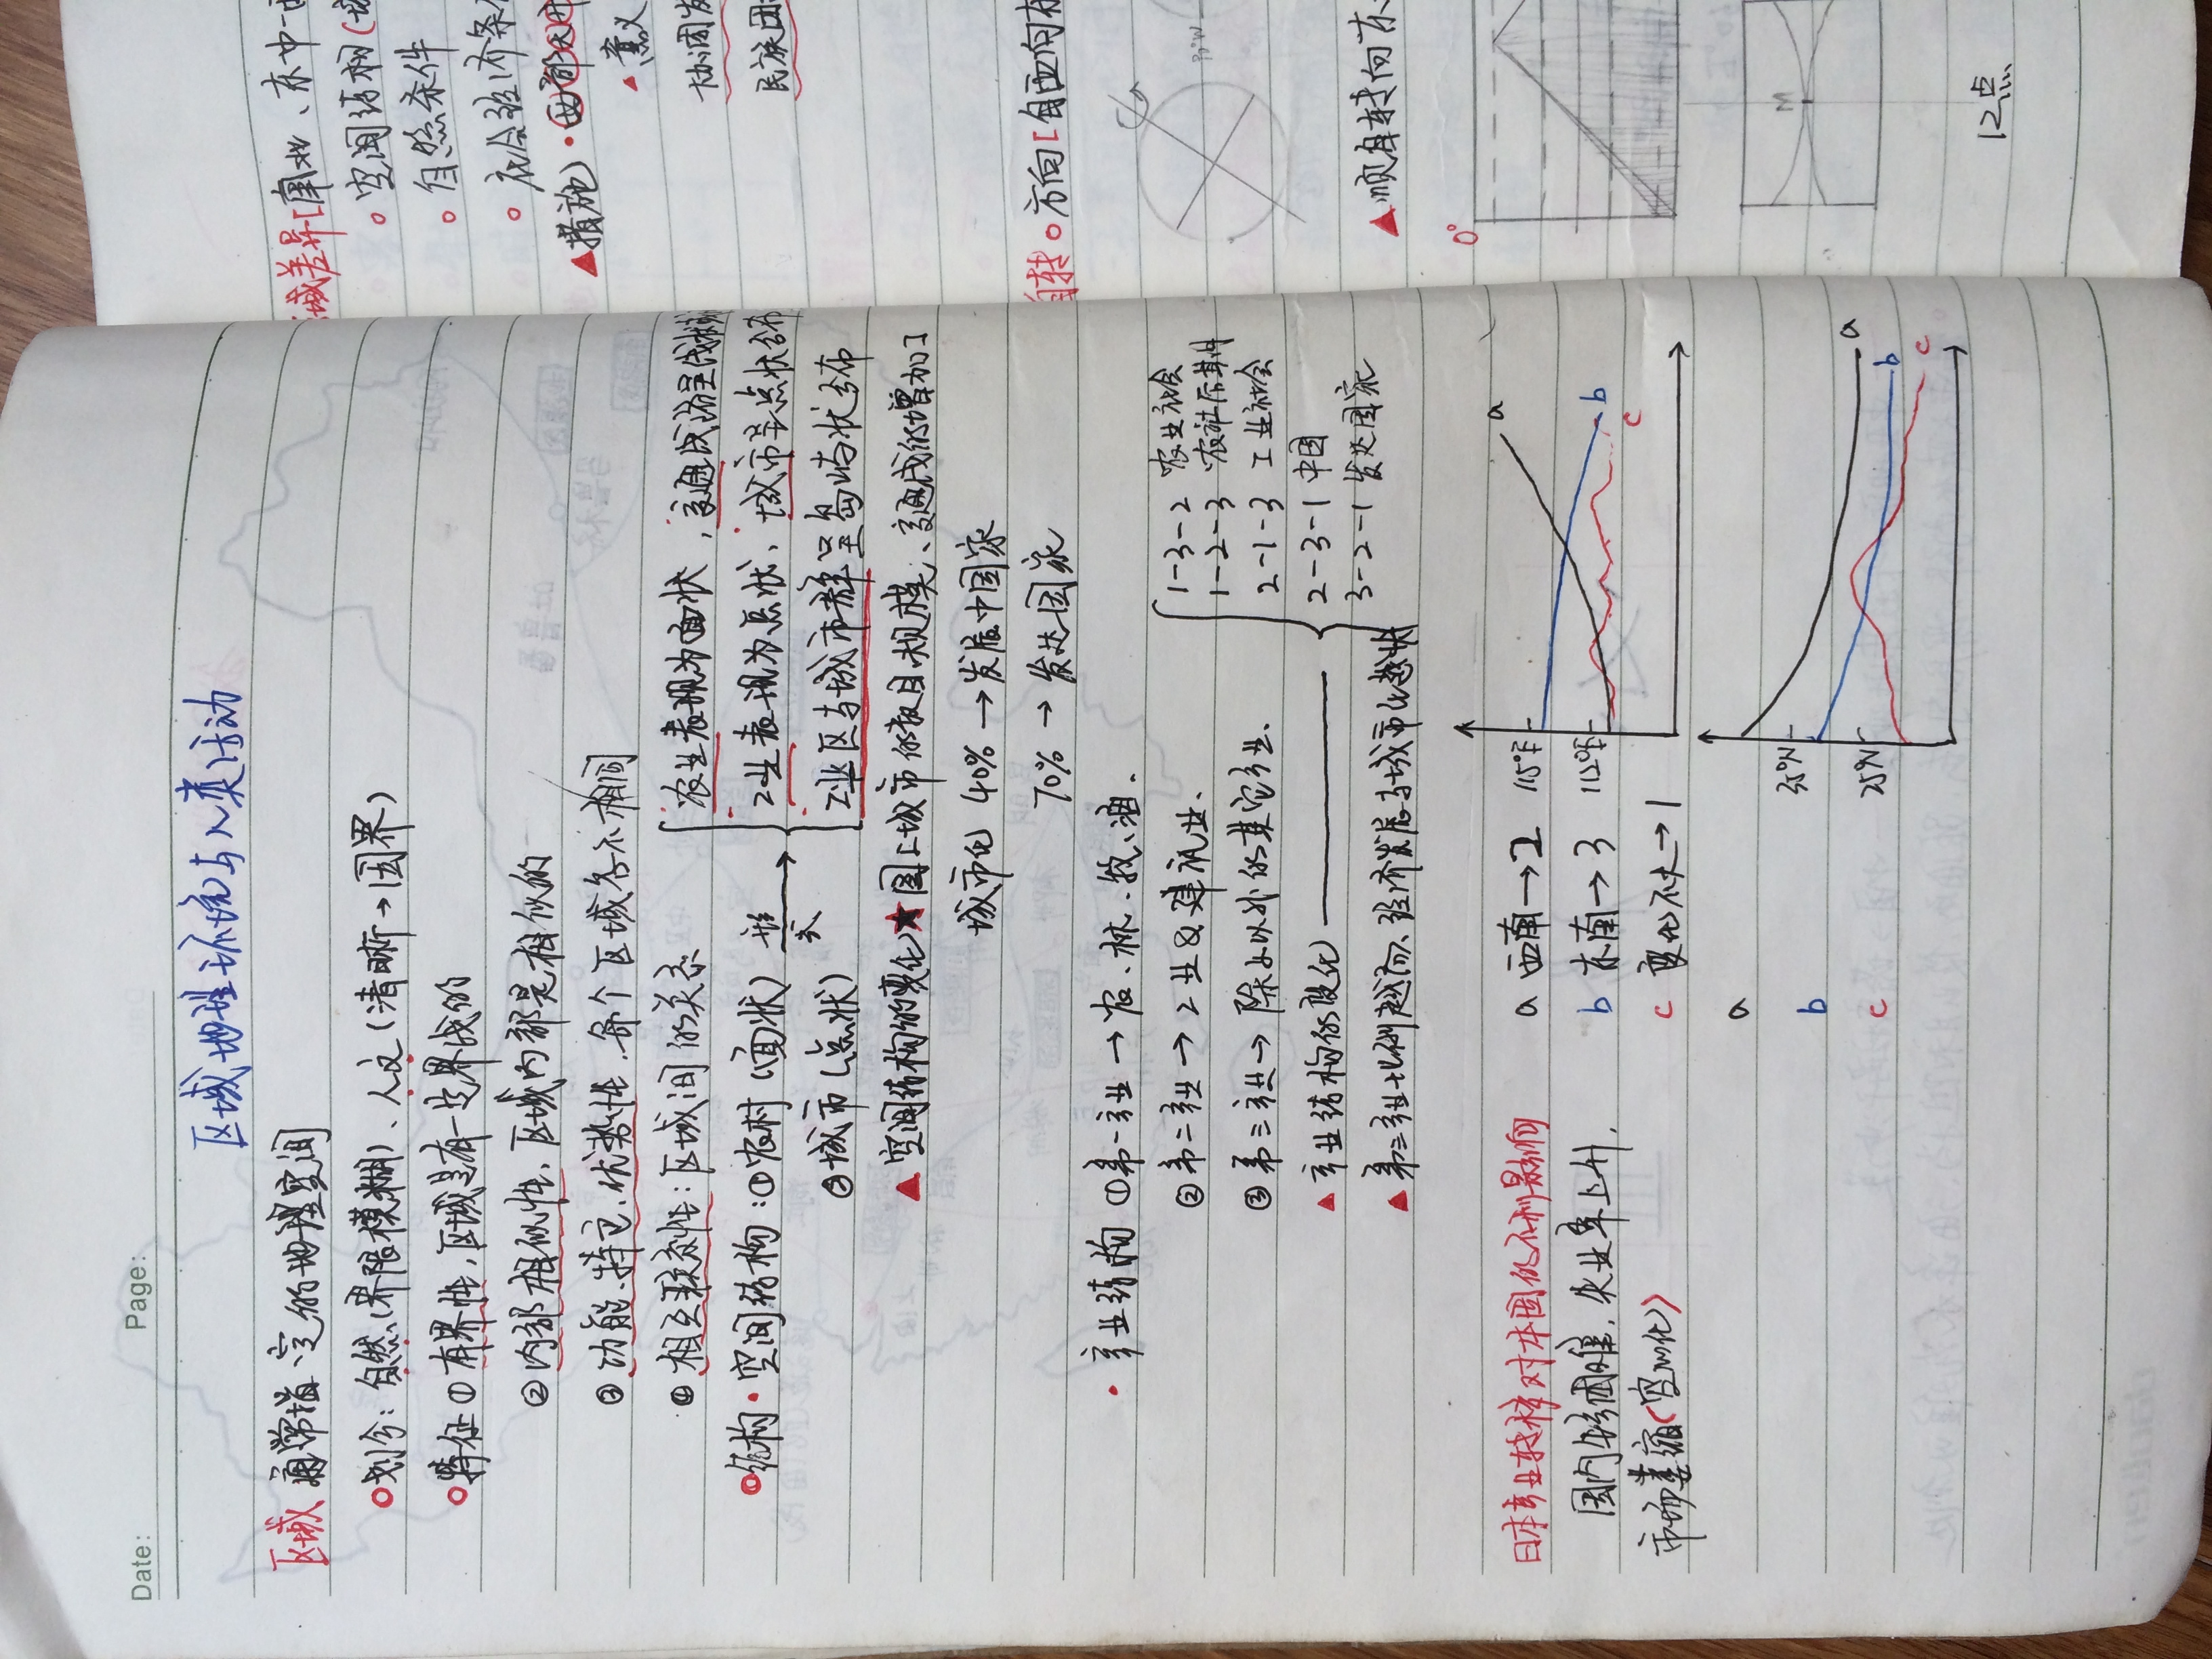 Date: Page:
区域地理环境与人类活动
区域 通常指一定的地理空间
划分：自然（界限模糊）、人文（清晰→国界）
特征 ① 有界性，区域是有一定界线的
② 内部相似性，区域内部是相似的
③ 功能、特色、优势性，每个区域各不相同
④ 相互联系性：区域间的关系
结构·空间结构：①农村（面状） 形式→
②城市（点状）
农业表现为面状，交通线路呈线状
工业表现为点状，城市呈点状分布
工业区与城市群呈岛屿状分布
▲ 空间结构的变化★图上城市的数目规模、交通线的增加
城市化 40% →发展中国家
70% → 发达国家
· 产业结构 ①第一产业 → 农、林、牧、渔、
②第二产业 → 工业&建筑业、
③第三产业→ 除 以外的其它产业、
▲ 产业结构的变化
1-3-2 农业社会
1-2-3 农社后期
2-1-3 工业社会
2-3-1 中国
3-2-1 发达国家
▲ 第三产业比例越高、经济发展与城市化越快
日本产业转移对本国的不利影响
国内 困难，失业率上升，
市场萎缩（空心化）
a 西南→2
b 东南→3
c 变化不大→1
115°E
112°E
a
b
c
a
b
c
35°N
25°N
a
b
c
域差异[南北、东中
空间结构（
自然条件
社会经济条
▲措施·西部大开
▲意义
协调发
民族团
自转 方向[自西向东
▲顺自转向东
0°
M
12点